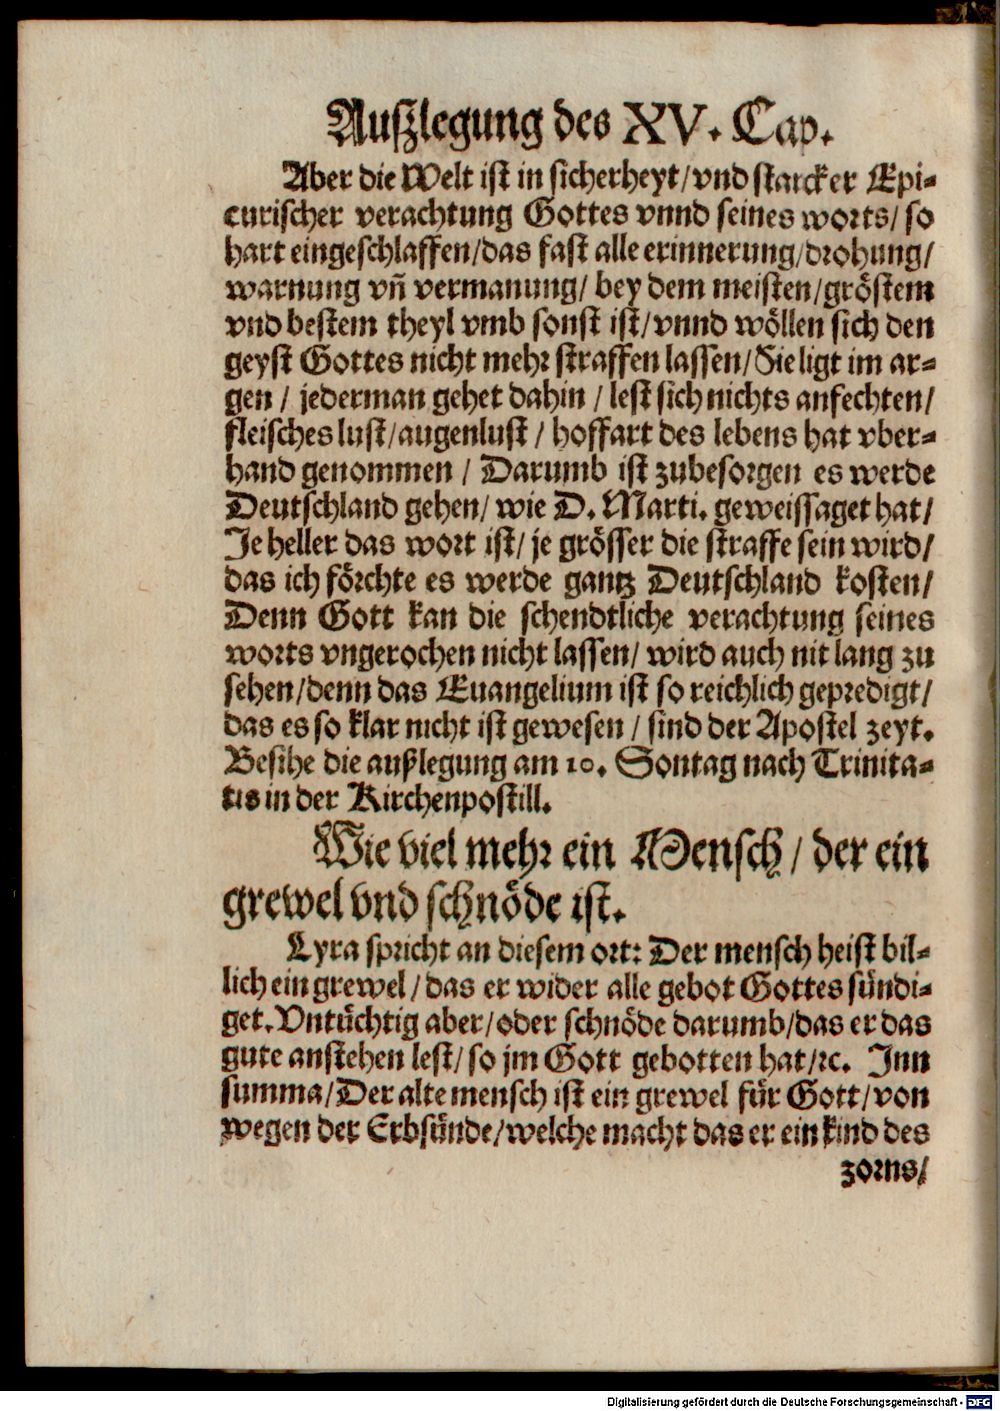 Außlegung des XV. Cap.
Aber die Welt ist in sicherheyt/vnd starcker Epi-
curischer verachtung Gottes vnnd seines worts/ so
hart eingeschlaffen/das fast alle erinnerung/drohung/
warnung vñ vermanung/ bey dem meisten/gröstem
vnd bestem theyl vmb sonst ist/vnnd wöllen sich den
geyst Gottes nicht mehr straffen lassen/Sie ligt im ar-
gen / jederman gehet dahin / lest sich nichts anfechten/
fleisches lust/augenlust / hoffart des lebens hat vber-
hand genommen / Darumb ist zubesorgen es werde
Deutschland gehen/ wie D. Marti. geweissaget hat/
Je heller das wort ist/ je grösser die straffe sein wird/
das ich förchte es werde gantz Deutschland kosten/
Denn Gott kan die schendtliche verachtung seines
worts vngerochen nicht lassen/ wird auch nit lang zu
sehen/denn das Euangelium ist so reichlich gepredigt/
das es so klar nicht ist gewesen / sind der Apostel zeyt.
Besihe die außlegung am 10. Sontag nach Trinita-
tis in der Kirchenpostill.
Wie viel mehr ein Mensch / der ein
grewel vnd schnöde ist.
Lyra spricht an diesem ort: Der mensch heist bil-
lich ein grewel / das er wider alle gebot Gottes sündi-
get. Vntüchtig aber/oder schnöde darumb/das er das
gute anstehen lest/ so jm Gott gebotten hat/ꝛc. Inn
summa/Der alte mensch ist ein grewel für Gott/von
wegen der Erbsünde/welche macht das er ein kind des
zorns/
Digitalisierung gefördert durch die Deutsche Forschungsgemeinschaft - DFG